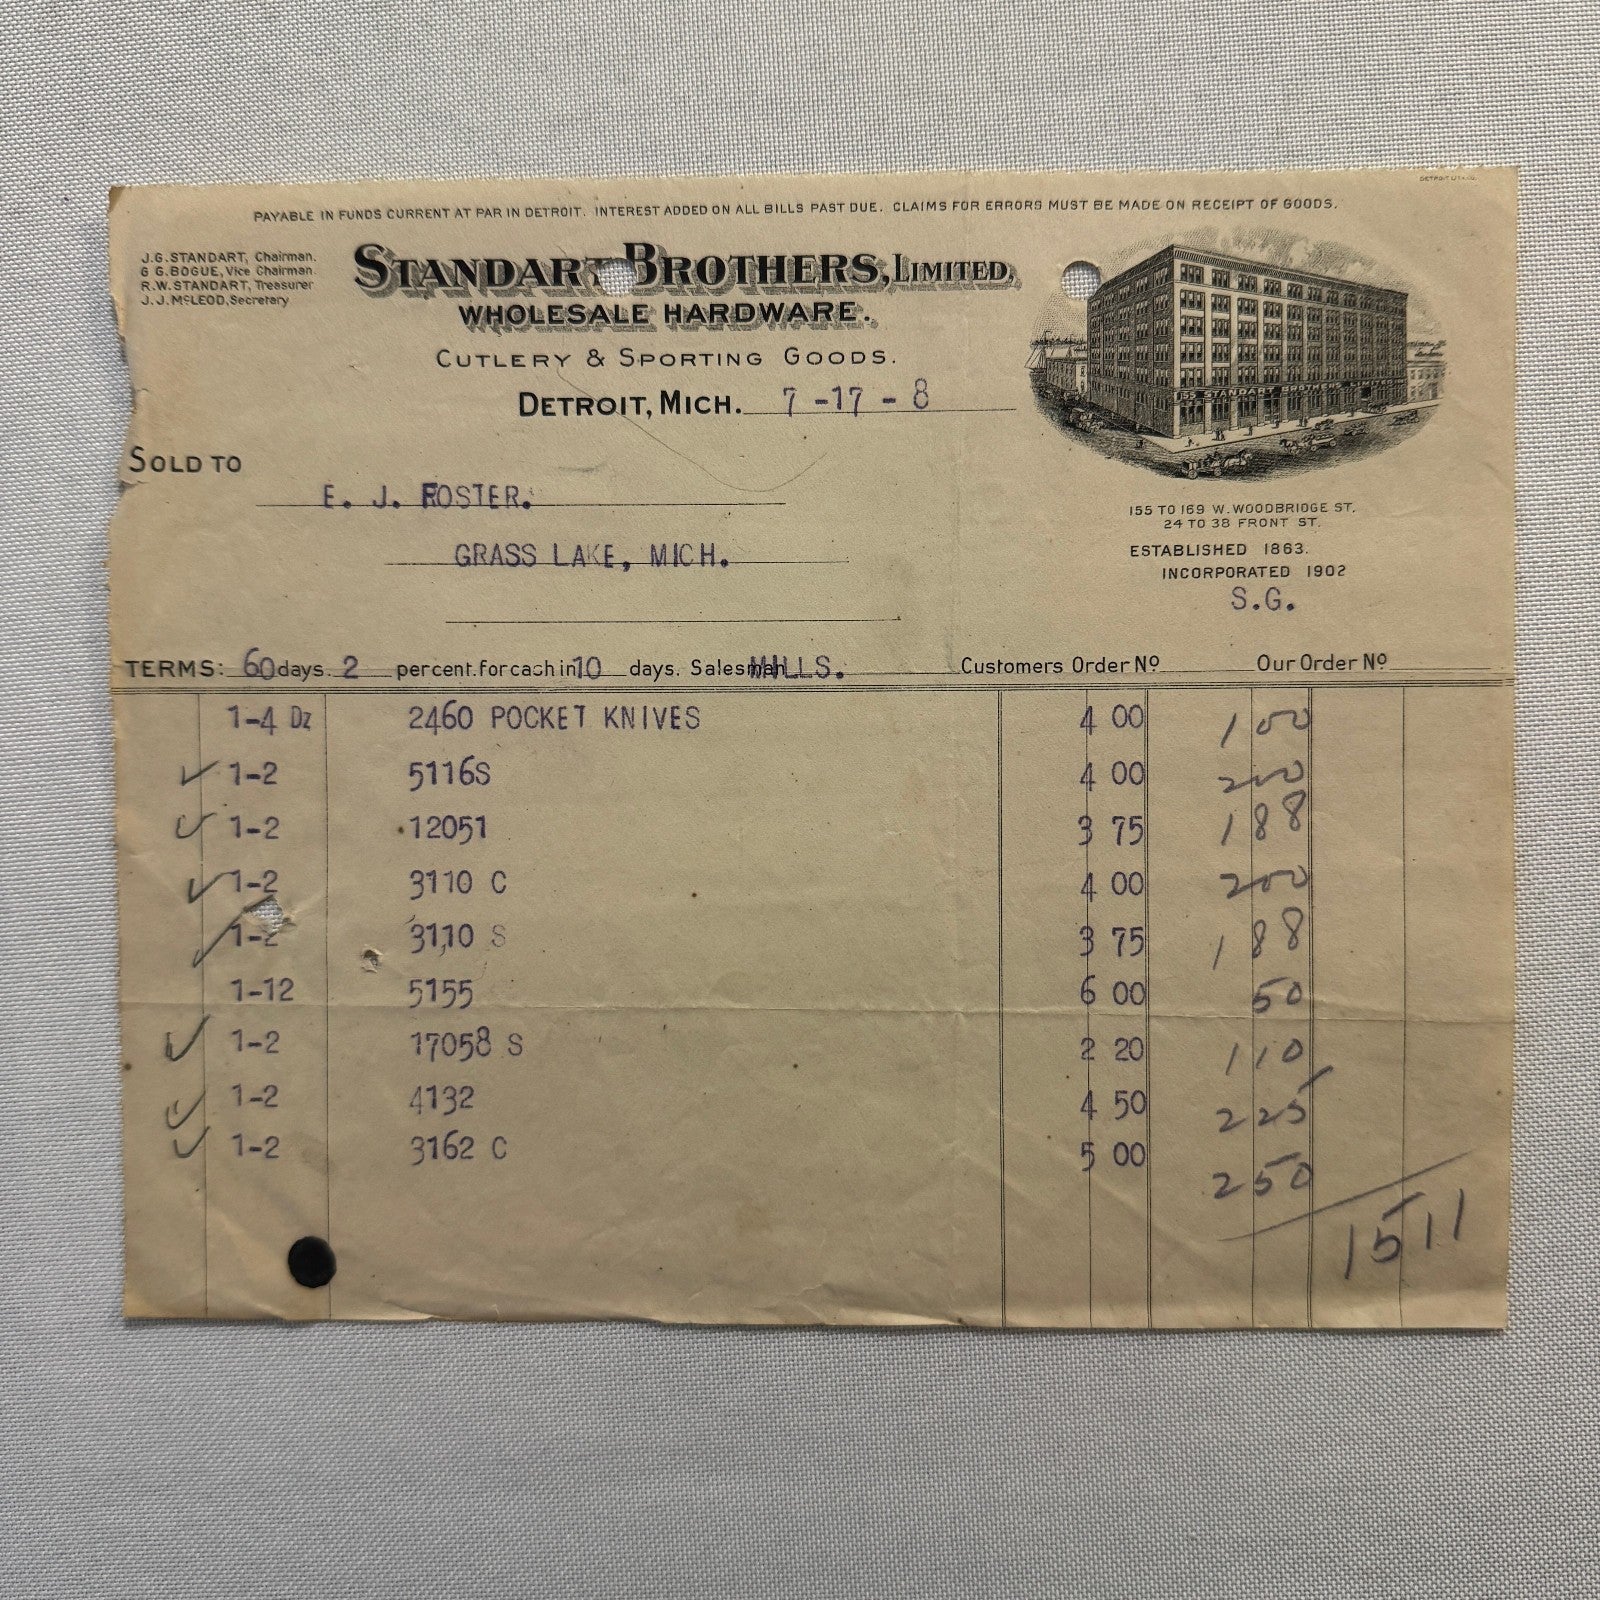 PAYABLE IN FUNDS CURRENT AT PAR IN DETROIT. INTEREST ADDED ON ALL BILLS PAST DUE. CLAIMS FOR ERRORS MUST BE MADE ON RECEIPT OF GOODS.
J.G. STANDART, Chairman.
G G. BOGUE, Vice Chairman.
R.W. STANDART, Treasurer
J.J. McLEOD, Secretary
STANDART BROTHERS, LIMITED,
WHOLESALE HARDWARE.
CUTLERY & SPORTING GOODS.
DETROIT, MICH. 7 -17 - 8
SOLD TO
E. J. FOSTER.
GRASS LAKE, MICH.
155 TO 169 W. WOODBRIDGE ST.
24 TO 38 FRONT ST.
ESTABLISHED 1863.
INCORPORATED 1902
S.G.
TERMS: 60 days. 2 percent. for cash in 10 days. Salesman MILLS. Customers Order Nº Our Order Nº
1-4 Dz 2460 POCKET KNIVES 4 00 1 00
✓ 1-2 5116S 4 00 2 00
✓ 1-2 12051 3 75 1 88
✓ 1-2 3110 C 4 00 2 00
✓ 1-2 3110 S 3 75 1 88
1-12 5155 6 00 50
✓ 1-2 17058 S 2 20 1 10
✓ 1-2 4132 4 50 2 25
✓ 1-2 3162 C 5 00 2 50
15 11